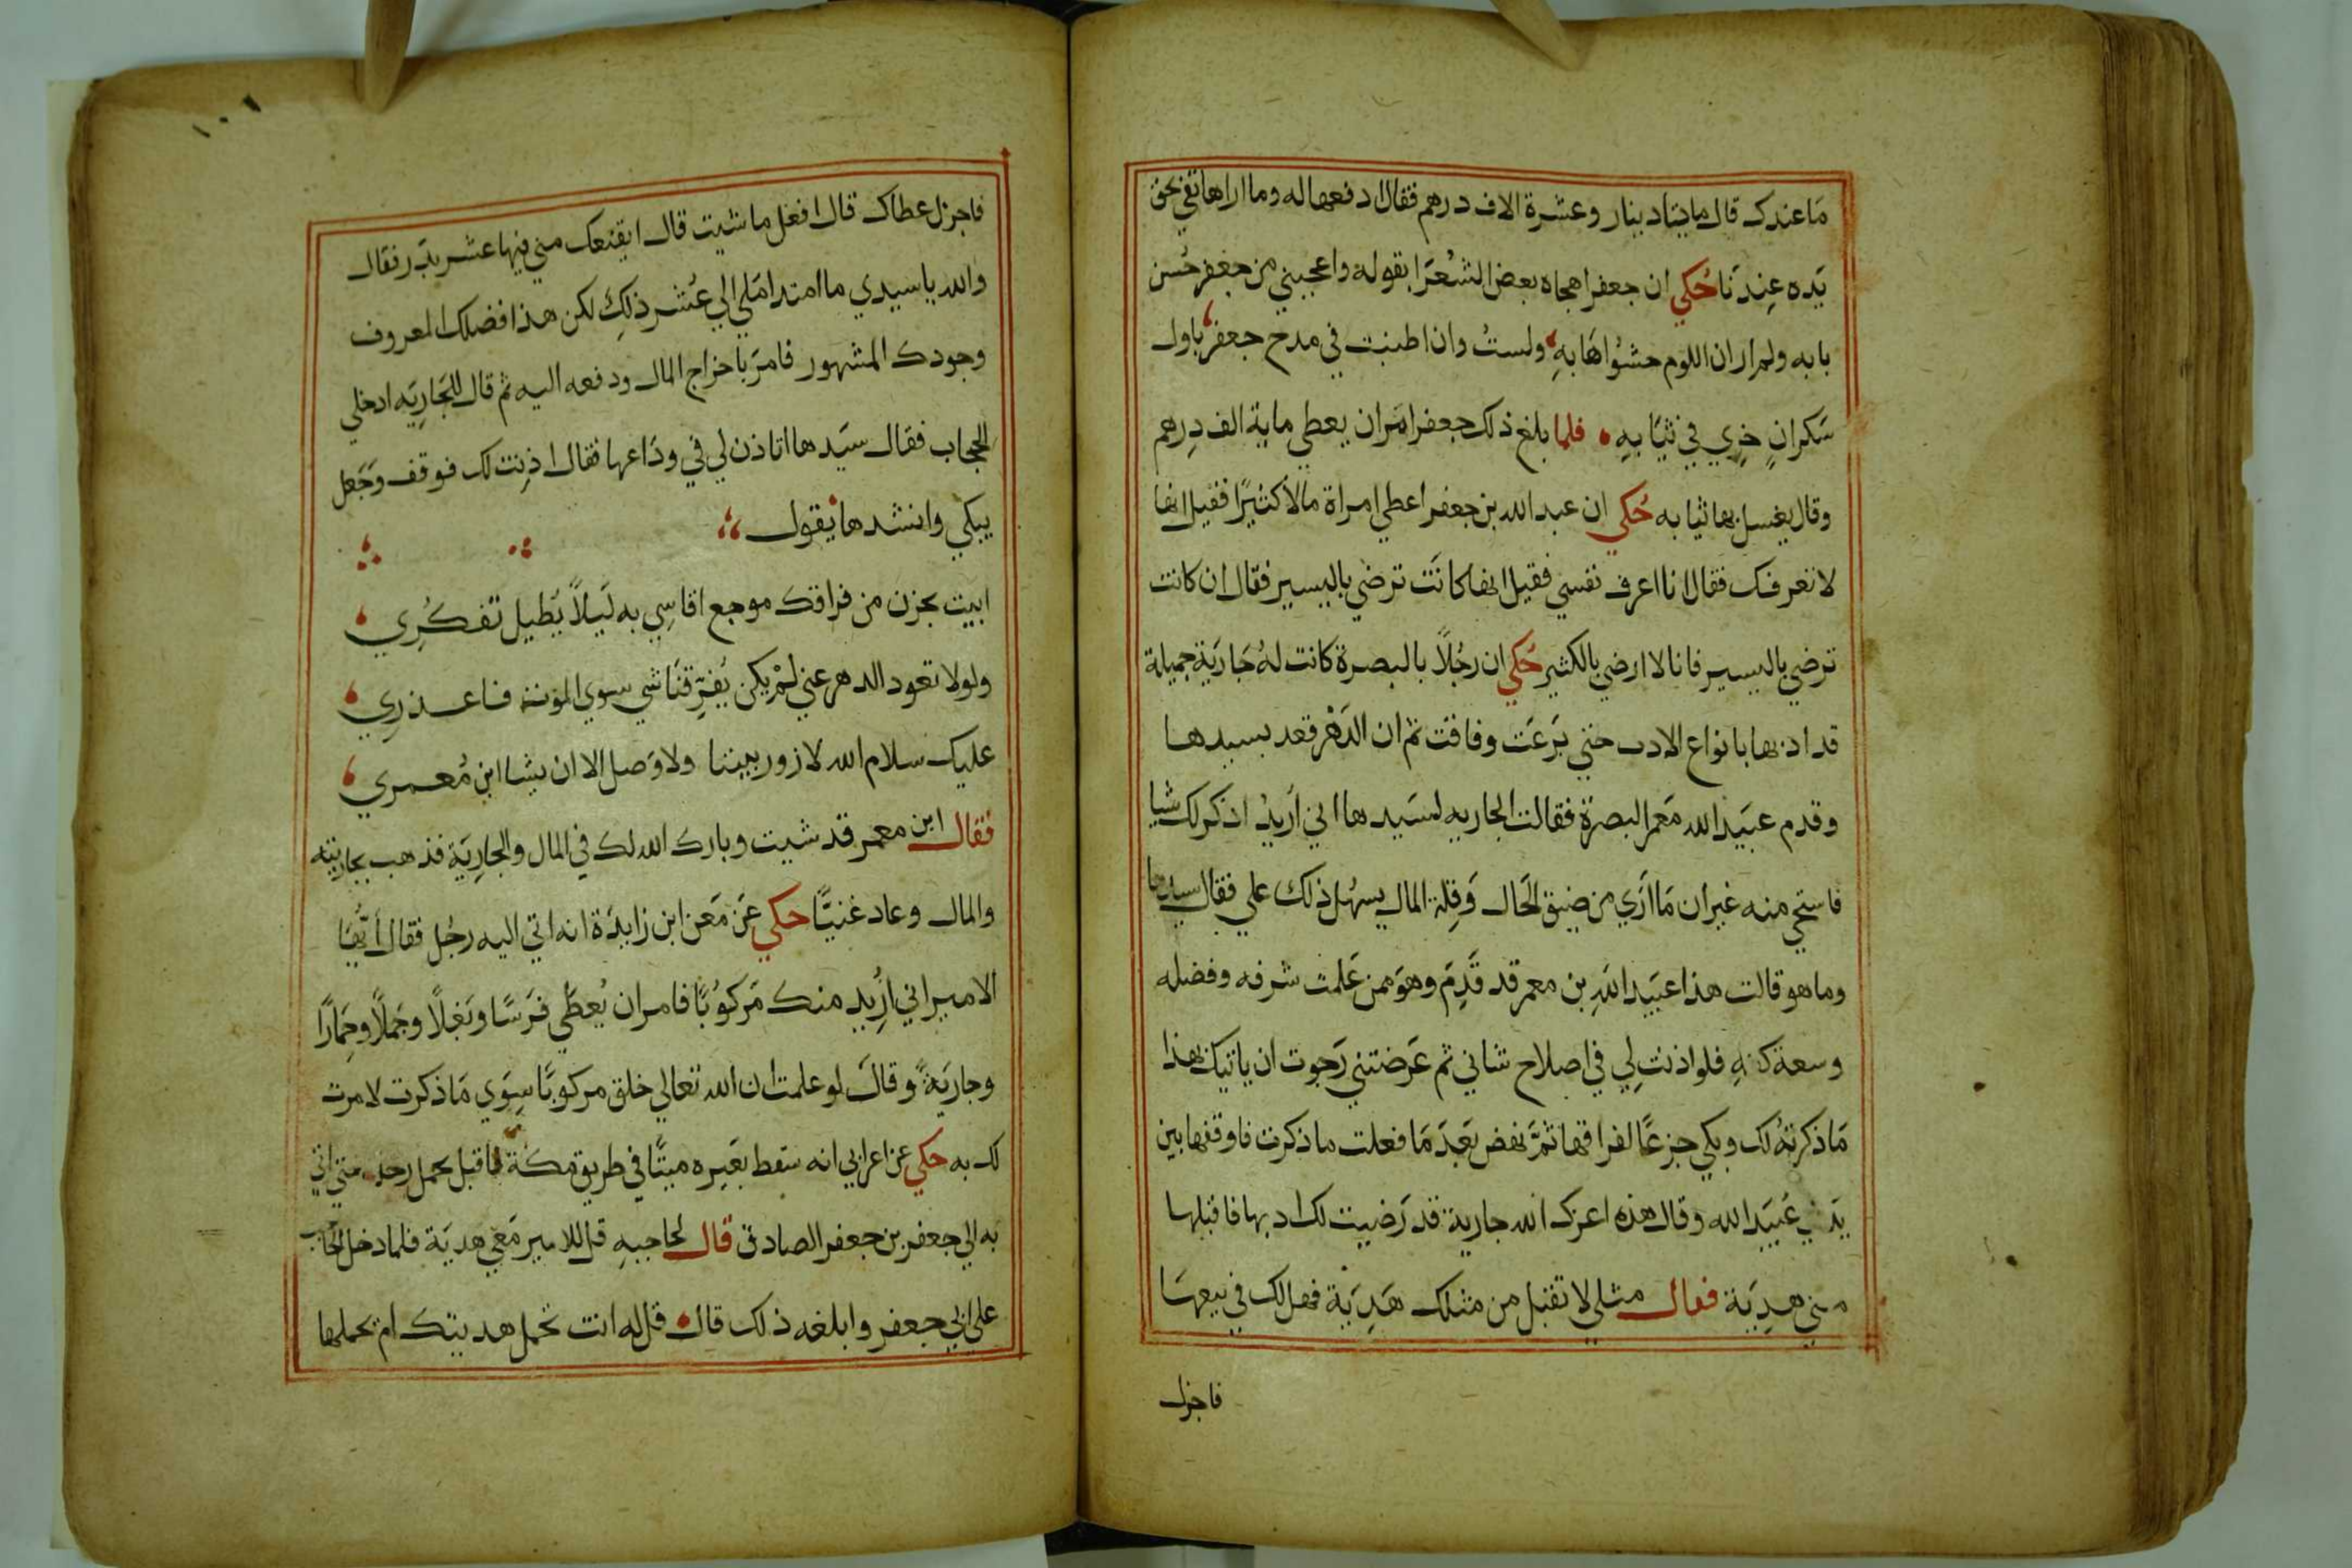 ما عندك قال مايتا دينار وعشرة الاف درهم فقال ادفعها له وما اراها تفي بحق
يَده عِندنَا حُكي ان جعفرا هجاه بعض الشعرَا بقوله واعجبني من جعفر حُسن
بابه ولم ار ان اللوم حشوُا هَابهِ ولستُ وان اطنبت في مدح جعفر باول
سَكرانٍ خزِي في ثيَابهِ فلما بلغ ذلك جعفرا امَر ان يعطي ماية الف دِرهم
وقال يغسل بها ثيابه حُكي ان عبد الله بن جعفر اعطي امراة مالًا كثيرًا فقيل انها
لا تعرفك فقال انا اعرف نفسي فقيل انها كانَت ترضي باليسير فقال ان كانت
ترضي باليسير فانا لا ارضي بالكثير حُكي ان رجُلًا بالبصرة كانت لهُ جَاريَة جميلة
قد ادبها بانواع الادب حتي بَرعَت وفاقت ثم ان الدَهْر قعد بسيدها
وقدم عبَيد الله مَعمر البصرَة فقالت الجاريه لسَيدها اني اُريدُ اذكر لك شيا
فاستحي منه غير ان مَا اَرَي من ضيق الحَال وَقِلة المال يسهُل ذلك علي فقال سيدها
وما هو قالت هذا عبَيد اللهِ بن معمر قد قَدِمَ وهوَ ممن عَلمت شرفه وفضله
وسعة كفهِ فلو اذنت لِي في اصلاح شاني ثم عَرضتني رَجوت ان ياتيك بهذا
مَا ذكرتهُ لك وبكي جزعًا لفراقها ثمَّ نهض بَعَدَ مَا فعلت ما ذكرت فاوقفها بين
يَدَي عُبيَد الله وقال هذه اعزك الله جارية قد رَضيت لك ادبها فاقبلها
مني هدِيَة فقال مثلي لا تقبل من مثلك هَدِيَة فهل لك في بيعهَا
فاجزل
١٠١
فاجزل عطاك قال افعل ما شيت قال ايقنعك مني فيها عشر بدَر فقال
والله يا سيدي ما امتد امَلي الي عُشر ذلِكَ لكن هذا فضلك المعروف
وجودك المشهور فامرَ باخراج المال ودفعه اليه ثم قال للجَارِيَه ادخلي
الحجاب فقال سيَدها اتاذن لي في ودَاعها فقال اذِنت لك فوقف وَجَعل
يبكي وانشدها يقول
ابيت بحزن من فراقك موجع اقاسِي به لَيلًا يَطيل تَفكُرِي
ولولا تعود الدهر عني لمْ يكن يُفرِّقنَا شي سوي الموت فاعذرِي
عليك سلام الله لا زور بيننا ولا وَصل الا ان يشا ابن مُعمري
فقال ابن معمر قد شيت وبارك الله لك في المال والجارِيَة فذهب بجاريته
والمال وعاد غنيًّا حكي عَن مَعن ابن زايدَة انه اتي اليه رجُل فقال اَيُّها
الامير اني اُرِيد منك مَركوُبًا فامر ان يُعطَي فرَسًا وبَغلًا وجَملًا وحِمَارًا
وجاريَةً وقالَ لو علمت ان الله تعالي خلق مركوبًا سِوَي مَا ذكرت لامرت
لك به حكي عن اعرابي انه سَقط بعَيِره ميتًا في طريق مكة فاقبل يحمل رحله متي اتي
به الي جعفر بن جعفر الصادق قال لحاجبهِ قل للامير مَعي هديَة فلما دخل الحاجب
علي ابي جعفر وابلغه ذلك قال قل له انت تحمل هديتك ام تحملها